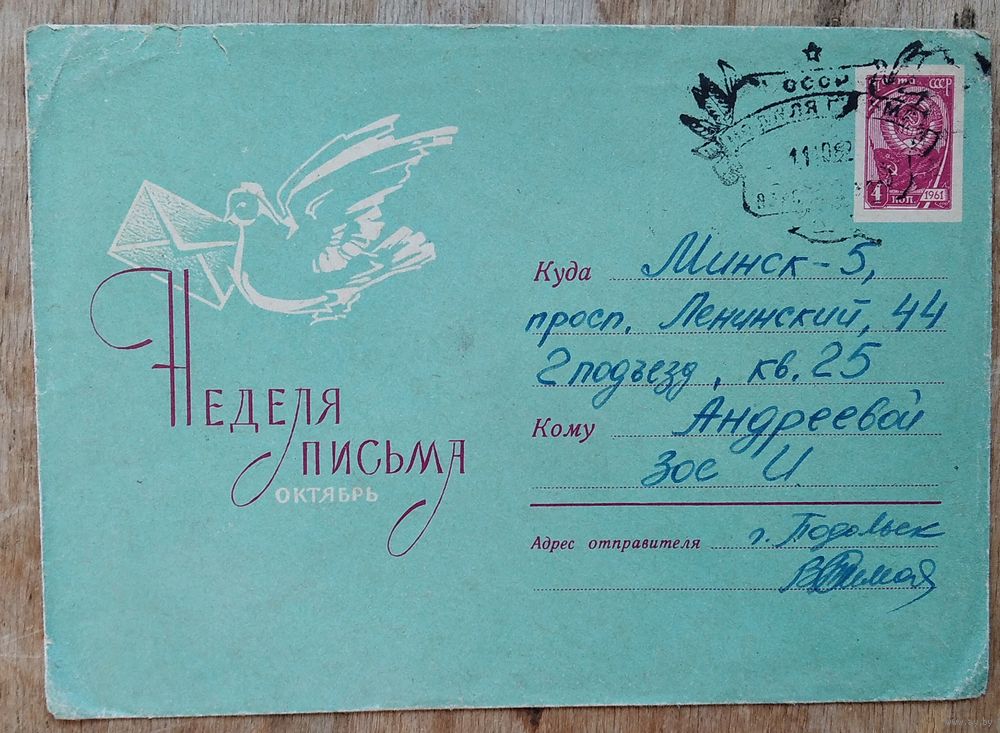 СССР
11 10 62
ПОЧТА СССР
4 КОП.
1961
Куда Минск-5,
просп. Ленинский, 44
2 подъезд, кв. 25
Кому Андреевой
Зое И
Адрес отправителя г. Подольск
НЕДЕЛЯ
ПИСЬМА
ОКТЯБРЬ
www.ay.by